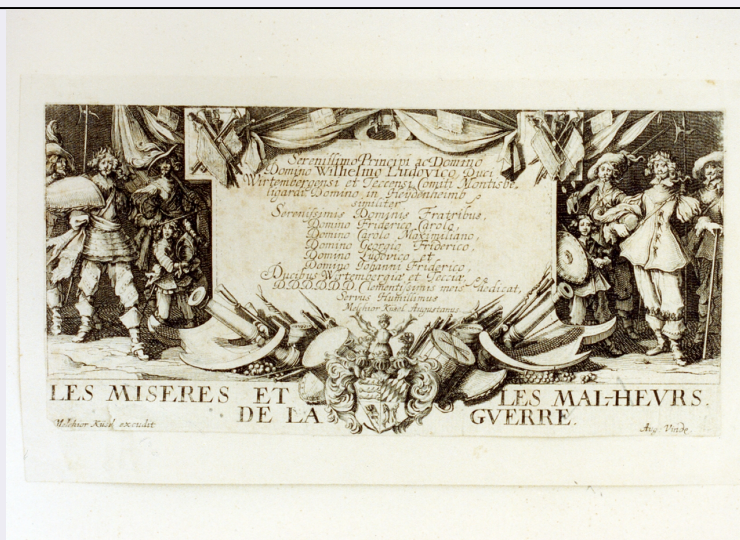 Serenissimo Principi ac Domino
Domino Wilhelmo Ludovico, Duci
Wirtembergensi et Teccensi, Comiti Montisbe,
ligardi, Domino in Heidenheimb
similiter
Serenissimis Dominis Fratribus,
Domino Friderico Carolo,
Domino Carolo Maximiliano,
Domino Georgio Friderico,
Domino Ludovico et
Domino Iohanni Friderico,
Ducibus Wirtembergiæ et Tecciæ.
Clementissimis meis dedicat,
Servus Humillimus
Melchior Küsel Augustanus
LES MISERES ET LES MAL-HEVRS.
DE LA GVERRE.
Melchior Küsel excudit Aug. Vinde.